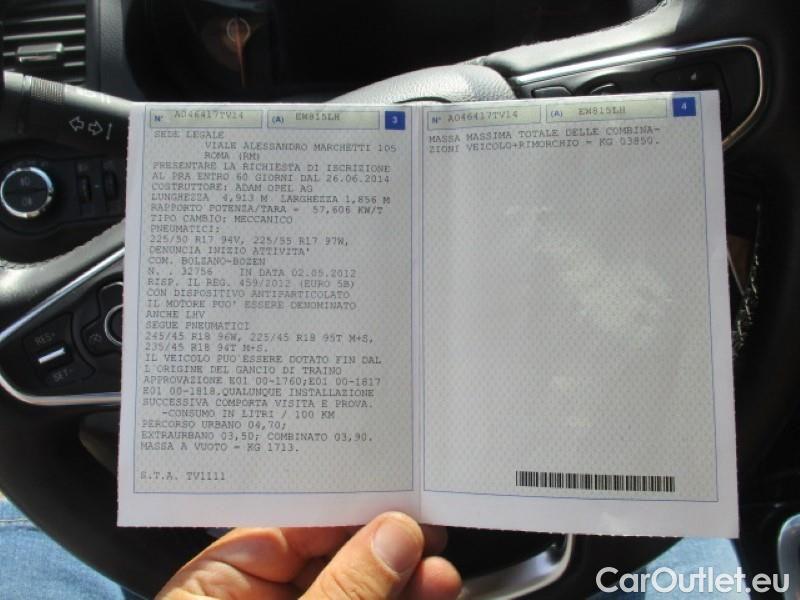 N° A046417TV14 (A) EW815LH 3
SEDE LEGALE
VIALE ALESSANDRO MARCHETTI 105
ROMA (RM)
PRESENTARE LA RICHIESTA DI ISCRIZIONE
AL PRA ENTRO 60 GIORNI DAL 26.06.2014
COSTRUTTORE: ADAM OPEL AG
LUNGHEZZA 4,913 M LARGHEZZA 1,856 M
RAPPORTO POTENZA/TARA = 57,606 KW/T
TIPO CAMBIO: MECCANICO
PNEUMATICI:
225/50 R17 94V, 225/55 R17 97W,
DENUNCIA INIZIO ATTIVITA'
COM. BOLZANO-BOZEN
N. . 32756 IN DATA 02.05.2012
RISP. IL REG. 459/2012 (EURO 5B)
CON DISPOSITIVO ANTIPARTICOLATO
IL MOTORE PUO' ESSERE DENOMINATO
ANCHE LHV
SEGUE PNEUMATICI
245/45 R18 96W, 225/45 R18 95T M+S,
235/45 R18 94T M+S.
IL VEICOLO PUO'ESSERE DOTATO FIN DAL
L'ORIGINE DEL GANCIO DI TRAINO
APPROVAZIONE E01 00-1760;E01 00-1817
E01 00-1818.QUALUNQUE INSTALLAZIONE
SUCCESSIVA COMPORTA VISITA E PROVA.
-CONSUMO IN LITRI / 100 KM
PERCORSO URBANO 04,70;
EXTRAURBANO 03,50; COMBINATO 03,90.
MASSA A VUOTO = KG 1713.
S.T.A. TV1111
N° A046417TV14 (A) EW815LH 4
MASSA MASSIMA TOTALE DELLE COMBINA-
ZIONI VEICOLO+RIMORCHIO = KG 03850.
RES+
SET-
CarOutlet.eu